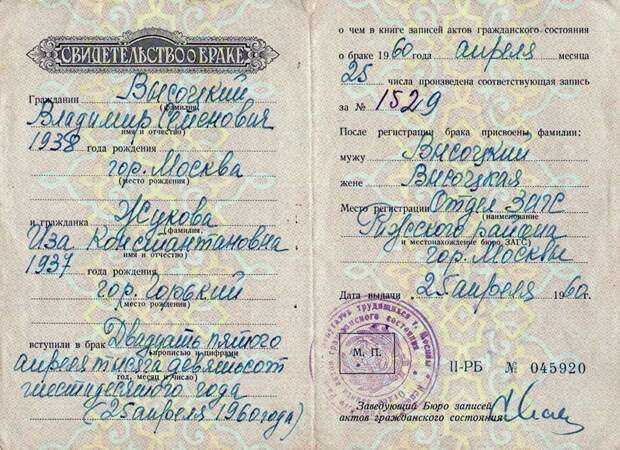 СВИДЕТЕЛЬСТВО О БРАКЕ
Гражданин Высоцкий
(фамилия,
Владимир Семенович
имя и отчество)
1938 года рождения
гор. Москва
(место рождения)
и гражданка Жукова
(фамилия,
Иза Константиновна
имя и отчество)
1937 года рождения
гор. Горький
(место рождения)
вступили в брак Двадцать пятого
(прописью и цифрами
апреля тысяча девятьсот
год, месяц и число)
шестидесятого года
(25 апреля 1960 года)
о чем в книге записей актов гражданского состояния
о браке 1960 года апреля месяца
25 числа произведена соответствующая запись
за № 1529
После регистрации брака присвоены фамилии:
мужу Высоцкий
жене Высоцкая
Место регистрации Отдел ЗАГС
(наименование
района
и местонахождение бюро ЗАГС)
гор. Москвы
Дата выдачи 25 апреля 1960 г.
М. П.
II-РБ № 045920
Заведующий Бюро записей
актов гражданского состояния